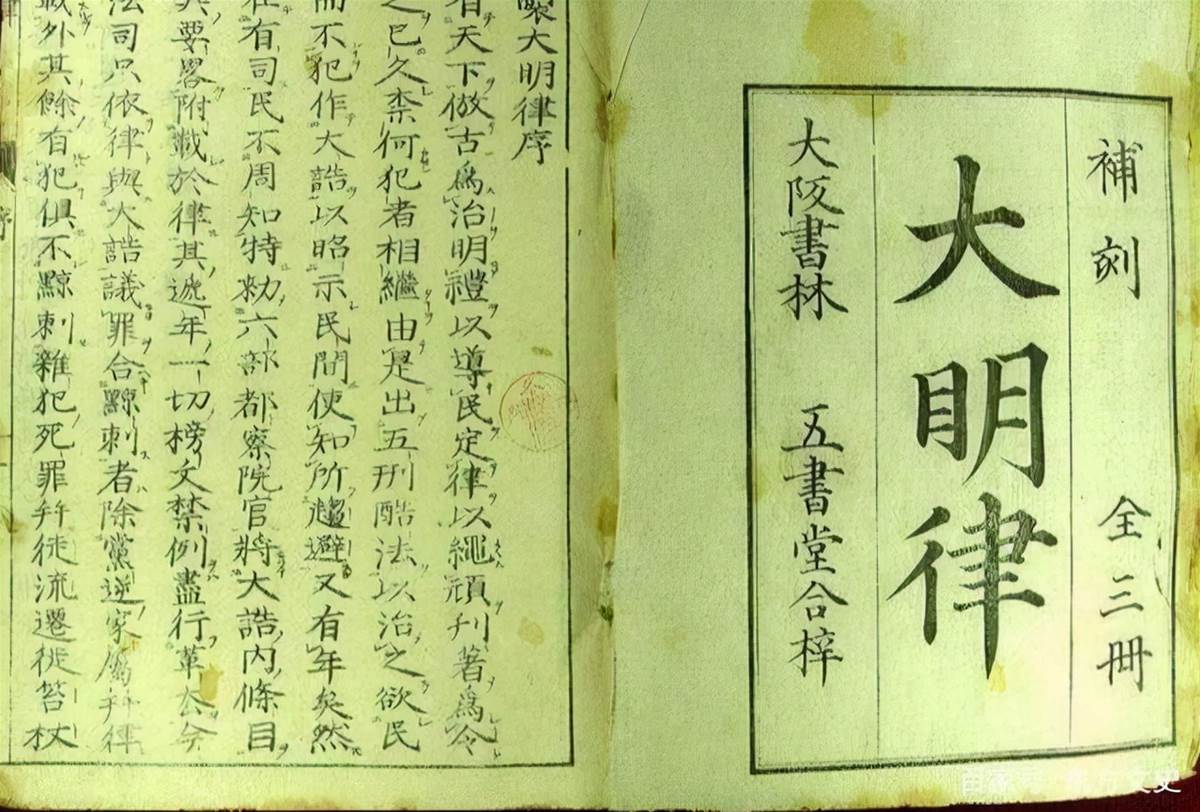 補刻 全三冊
大明律
大阪書林 五書堂合梓
製大明律序
有天下倣古爲治明禮以導民定律以繩頑刋著爲令
之巳久柰何犯者相繼由是出五刑酷法以治之欲民
而不犯作大誥以昭示民間使知所趨避又有年矣然
在有司民不周知特勑六部都察院官將大誥內條目
其要畧附載於律其遞年一切榜文禁例盡行革去今
法司只依律與大誥議罪合黥刺者除黨逆家屬幷律
載外其餘有犯俱不黥刺雜犯死罪幷徒流遷徙笞杖
序